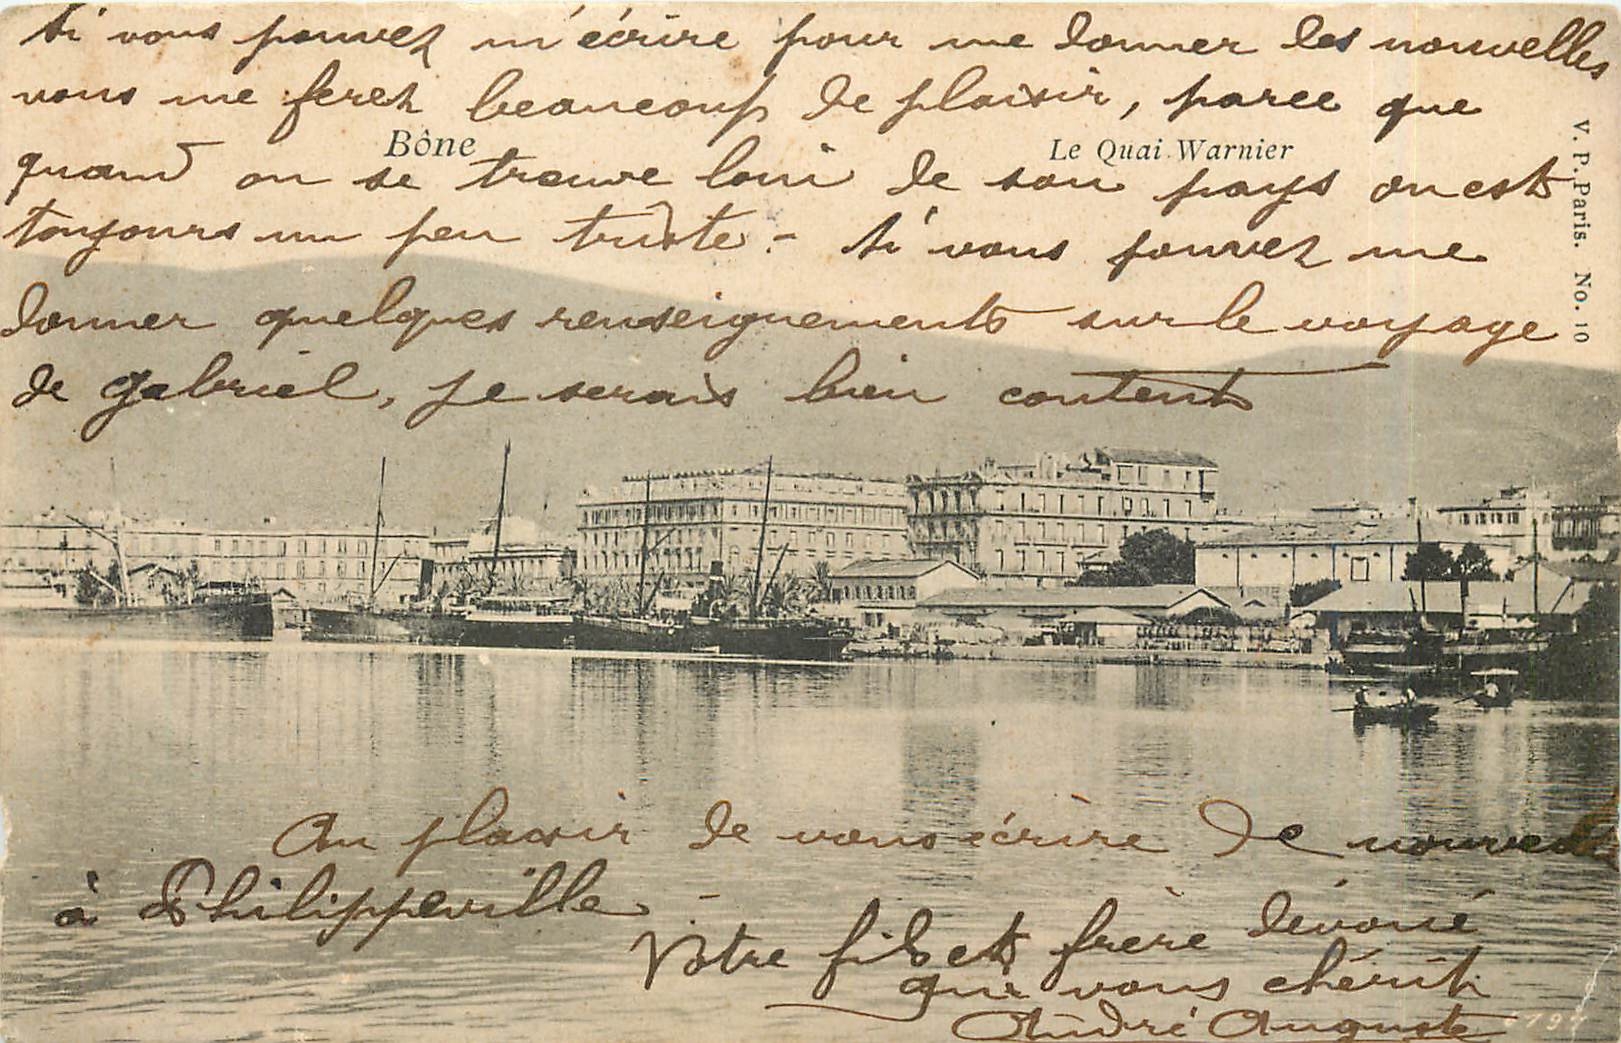 Si vous pouvez m'écrire pour me donner des nouvelles
vous me ferez beaucoup de plaisir, parce que
Bône
Le Quai Warnier
V. P. Paris. No. 10
quand on se trouve loin de son pays on est
toujours un peu triste - Si vous pouvez me
donner quelques renseignements sur le voyage
de Gabriel, je serais bien content
Au plaisir de vous écrire de nouveau
à Philippeville -
Votre fils et frère dévoué
qui vous chérit
André Auguste